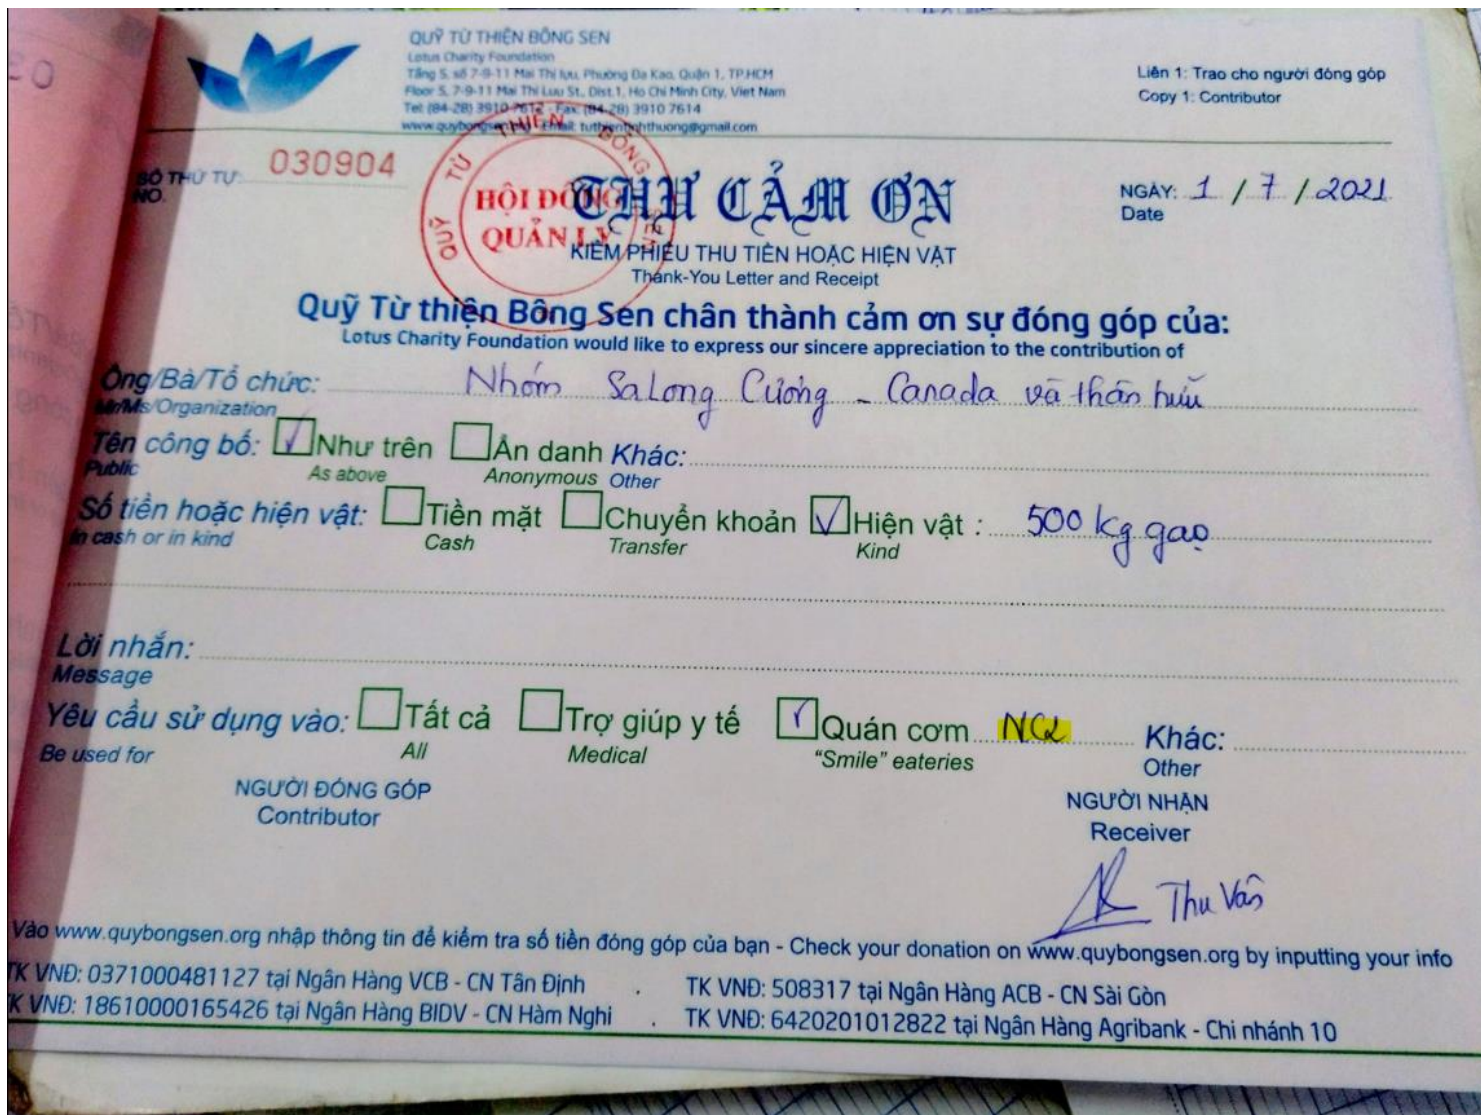 QUỸ TỪ THIỆN BÔNG SEN
Lotus Charity Foundation
Tầng 5, số 7-9-11 Mai Thị Lựu, Phường Đa Kao, Quận 1, TP.HCM
Floor 5, 7-9-11 Mai Thi Luu St., Dist.1, Ho Chi Minh City, Viet Nam
Tel: (84-28) 3910 7612 - Fax: (84-28) 3910 7614
www.quybongsen.org - Email: tuthientinhthuong@gmail.com
Liên 1: Trao cho người đóng góp
Copy 1: Contributor
SỐ THỨ TỰ: 030904
NO.
QUỸ TỪ THIỆN BÔNG SEN
HỘI ĐỒNG
QUẢN LÝ
THƯ CẢM ƠN
NGÀY: 1 / 7 / 2021
Date
KIÊM PHIẾU THU TIỀN HOẶC HIỆN VẬT
Thank-You Letter and Receipt
Quỹ Từ thiện Bông Sen chân thành cảm ơn sự đóng góp của:
Lotus Charity Foundation would like to express our sincere appreciation to the contribution of
Ông/Bà/Tổ chức: Nhóm SaLong Cương - Canada và thân hữu
Mr/Ms/Organization
Tên công bố: Như trên Ẩn danh Khác:
Public As above Anonymous Other
Số tiền hoặc hiện vật: Tiền mặt Chuyển khoản Hiện vật : 500 kg gạo
In cash or in kind Cash Transfer Kind
Lời nhắn:
Message
Yêu cầu sử dụng vào: Tất cả Trợ giúp y tế Quán cơm NC2 Khác:
Be used for All Medical "Smile" eateries Other
NGƯỜI ĐÓNG GÓP
Contributor
NGƯỜI NHẬN
Receiver
Thu Vân
Vào www.quybongsen.org nhập thông tin để kiểm tra số tiền đóng góp của bạn - Check your donation on www.quybongsen.org by inputting your info
TK VNĐ: 0371000481127 tại Ngân Hàng VCB - CN Tân Định
TK VNĐ: 508317 tại Ngân Hàng ACB - CN Sài Gòn
TK VNĐ: 18610000165426 tại Ngân Hàng BIDV - CN Hàm Nghi
TK VNĐ: 6420201012822 tại Ngân Hàng Agribank - Chi nhánh 10